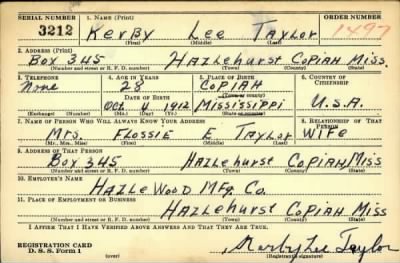 SERIAL NUMBER 1. NAME (Print) ORDER NUMBER
3212 Kerby Lee Taylor 1497
(First) (Middle) (Last)
2. ADDRESS (Print)
Box 345 Hazlehurst Copiah Miss.
(Number and street or R. F. D. number) (Town) (County) (State)
3. TELEPHONE 4. AGE IN YEARS 5. PLACE OF BIRTH 6. COUNTRY OF CITIZENSHIP
None 28 Copiah
DATE OF BIRTH (Town or county)
Oct 4 1912 Mississippi U.S.A.
(Exchange) (Number) (Mo.) (Day) (Yr.) (State or country)
7. NAME OF PERSON WHO WILL ALWAYS KNOW YOUR ADDRESS 8. RELATIONSHIP OF THAT PERSON
Mrs. Flossie E Taylor Wife
(Mr., Mrs., Miss) (First) (Middle) (Last)
9. ADDRESS OF THAT PERSON
Box 345 Hazlehurst Copiah Miss
(Number and street or R. F. D. number) (Town) (County) (State)
10. EMPLOYER'S NAME
Hazle Wood Mfg. Co.
11. PLACE OF EMPLOYMENT OR BUSINESS
Hazlehurst Copiah Miss
(Number and street or R. F. D. number) (Town) (County) (State)
I AFFIRM THAT I HAVE VERIFIED ABOVE ANSWERS AND THAT THEY ARE TRUE.
REGISTRATION CARD
D. S. S. Form 1 Kerby Lee Taylor
(Registrant's signature)